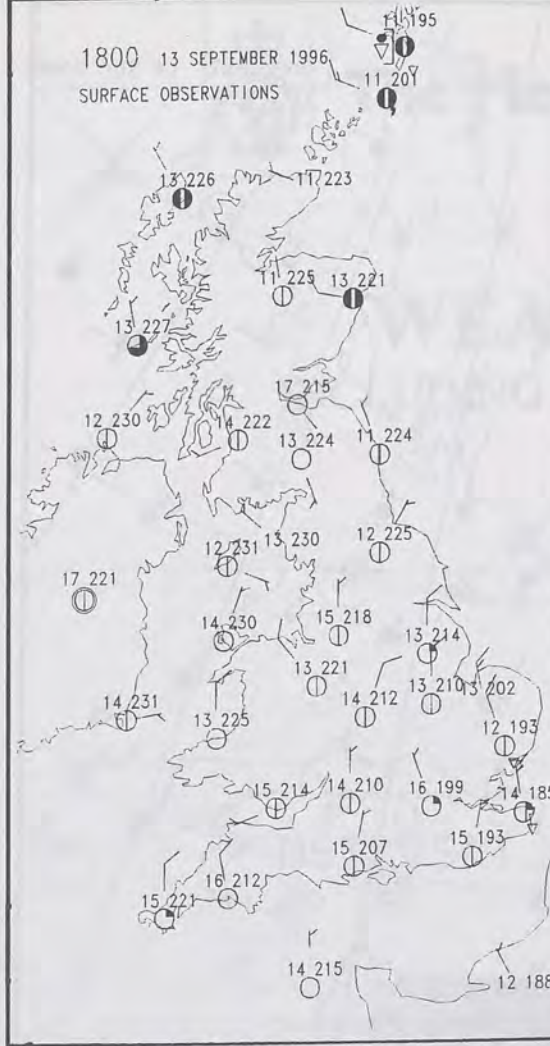 11 195
1800 13 SEPTEMBER 1996
SURFACE OBSERVATIONS
11 201
13 226
11 223
11 225
13 221
13 227
17 215
12 230
14 222
13 224
11 224
13 230
12 225
12 231
17 221
14 230
15 218
13 214
13 221
13 202
14 231
13 225
14 212
13 210
12 193
15 214
14 210
16 199
14 185
15 207
15 193
16 212
15 221
14 215
12 188